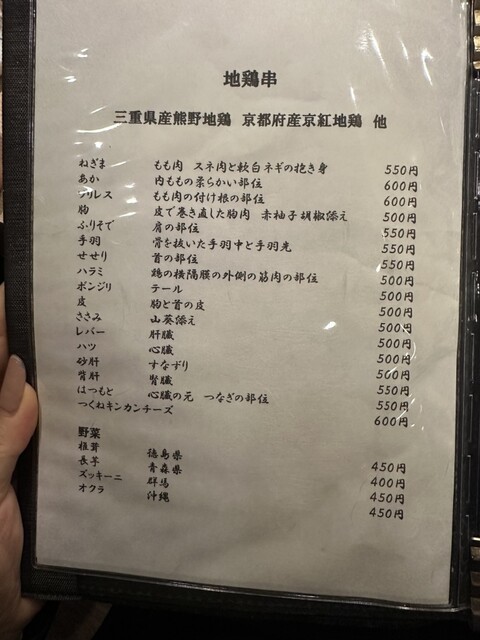 地鶏串
三重県産熊野地鶏 京都府産京紅地鶏 他
ねぎま もも肉 スネ肉と軟白ネギの抱き身 550円
あか 内ももの柔らかい部位 600円
ソリレス もも肉の付け根の部位 600円
胸 皮で巻き直した胸肉 赤柚子胡椒添え 500円
ふりそで 肩の部位 550円
手羽 骨を抜いた手羽中と手羽先 550円
せせり 首の部位 550円
ハラミ 鶏の横隔膜の外側の筋肉の部位 500円
ボンジリ テール 500円
皮 胸と首の皮 500円
ささみ 山葵添え 500円
レバー 肝臓 500円
ハツ 心臓 500円
砂肝 すなずり 500円
背肝 腎臓 550円
はつもと 心臓の元 つなぎの部位 550円
つくねキンカンチーズ 600円
野菜
椎茸 徳島県 450円
長芋 青森県 400円
ズッキーニ 群馬 450円
オクラ 沖縄 450円